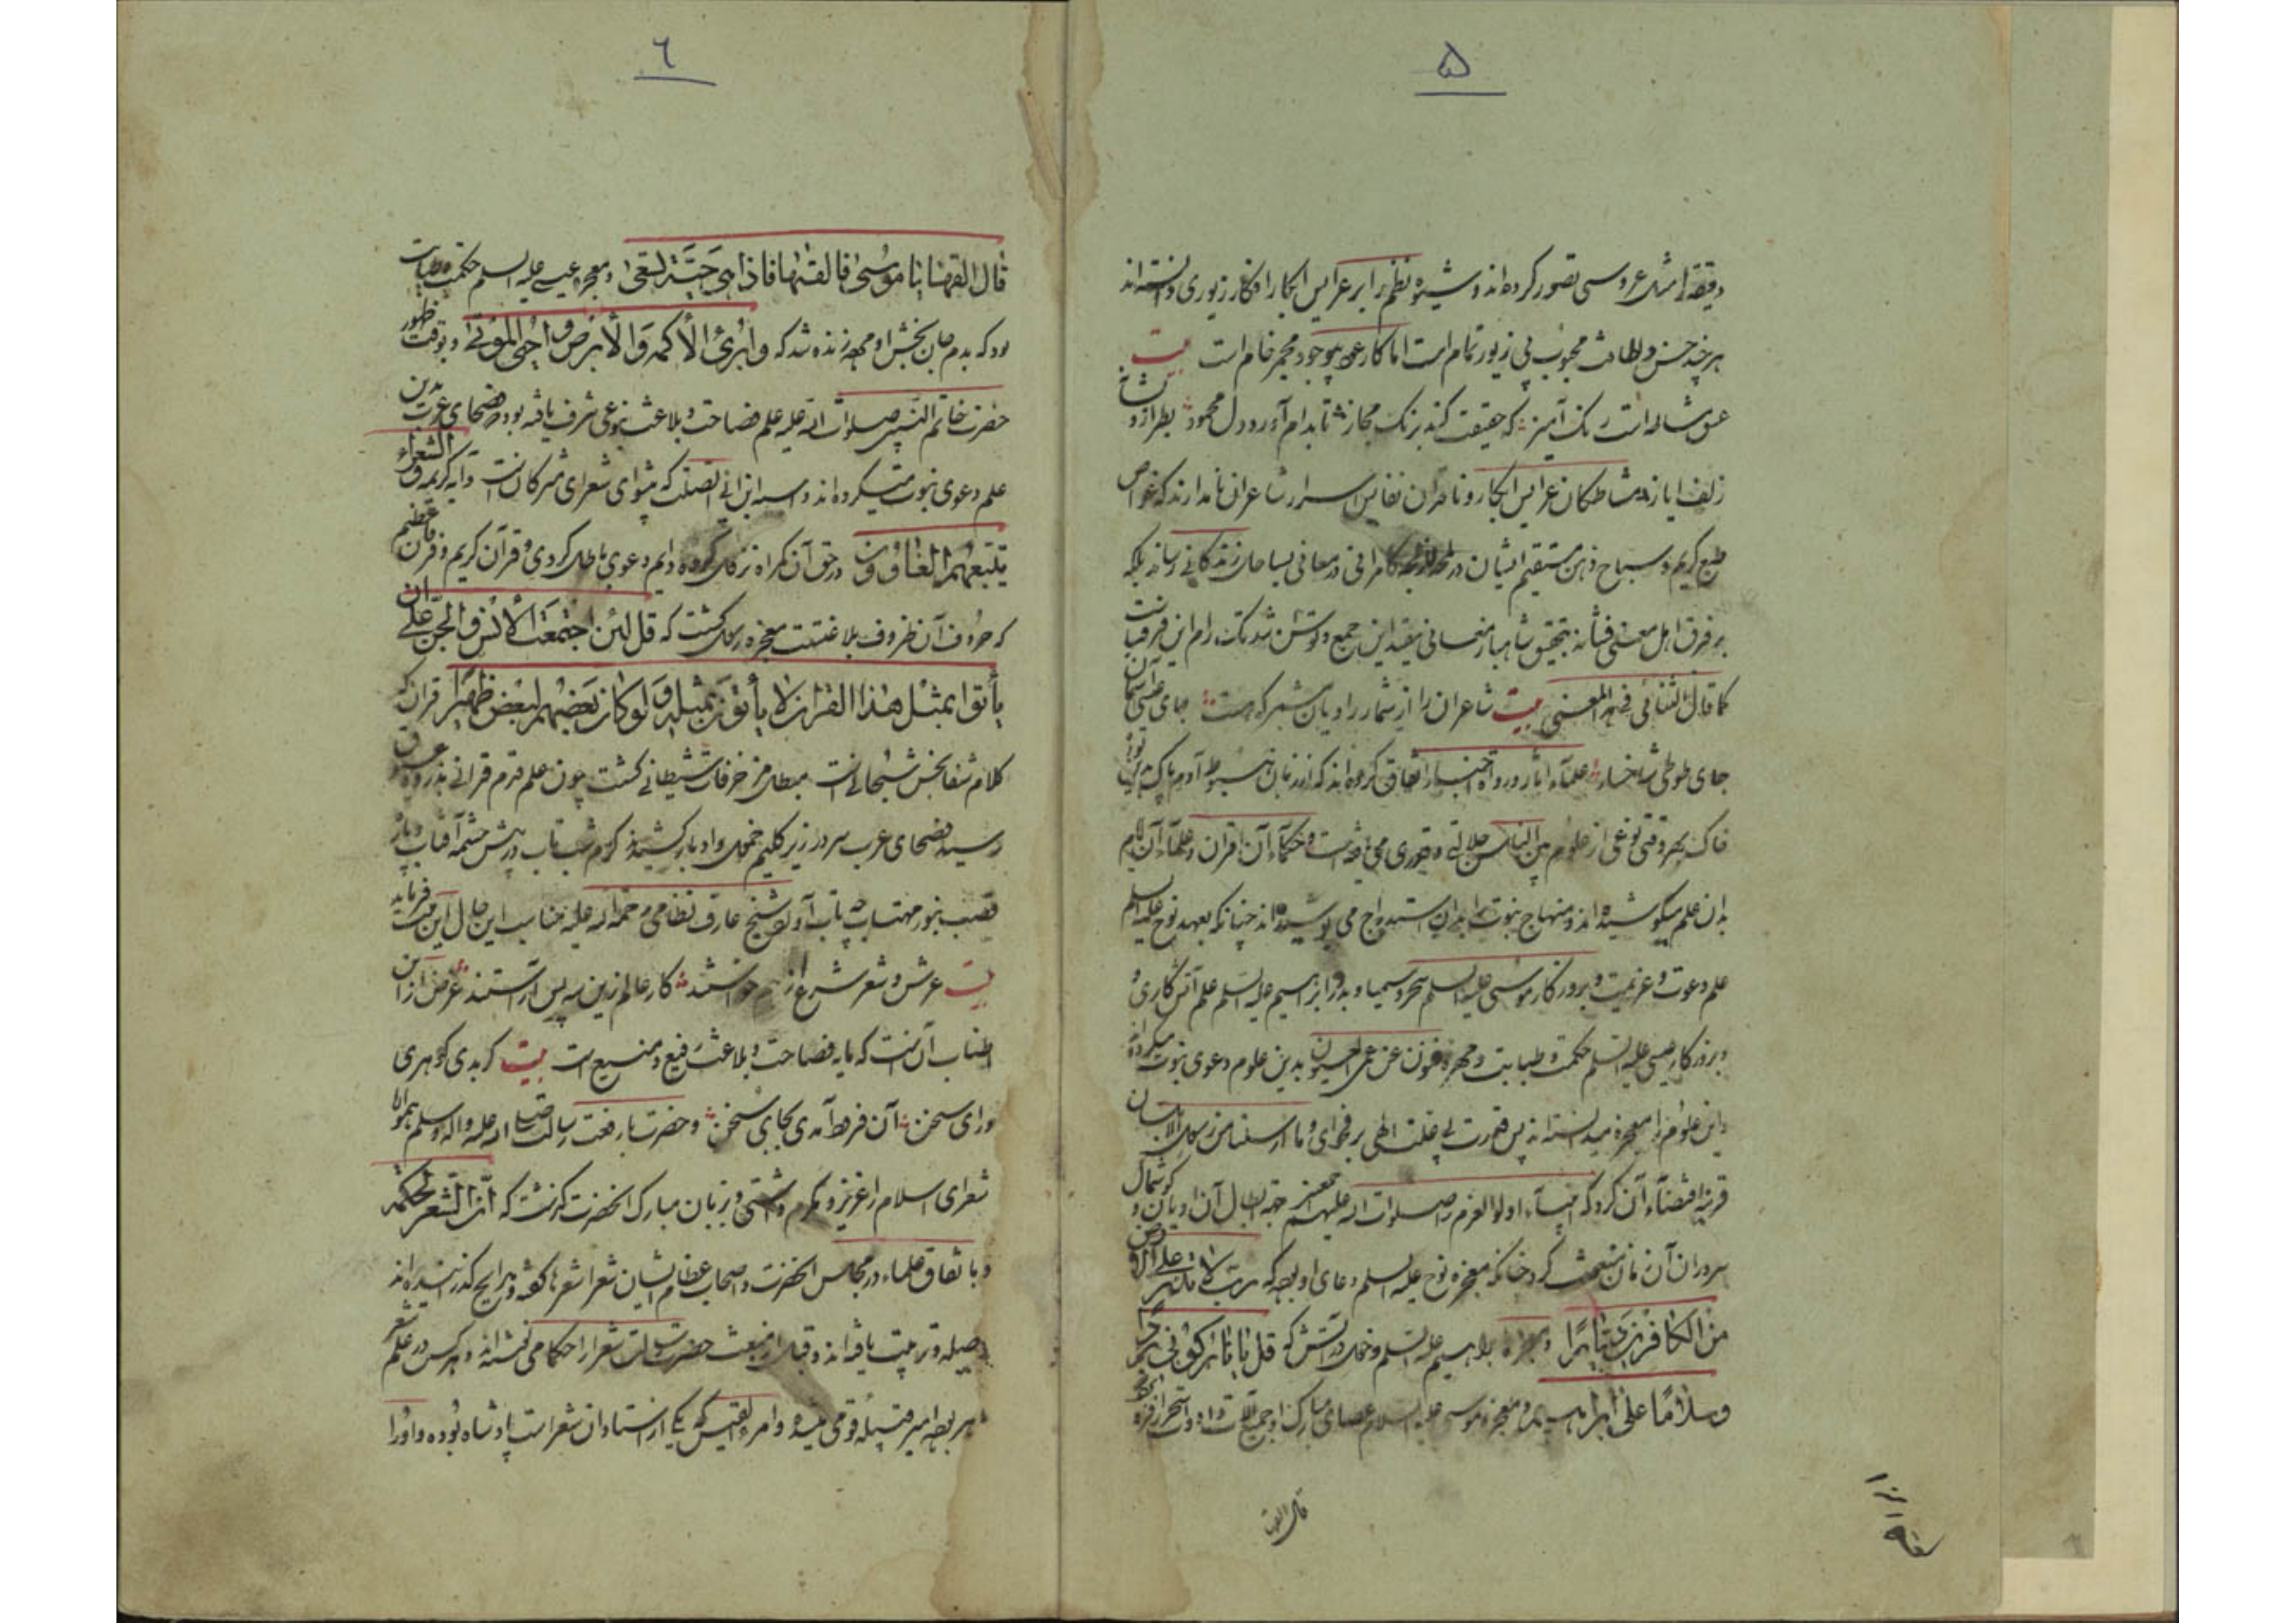 ۵
دقیقه را مثل عروسی تصور کرده‌اند و شیوه نظم را بر عرایس ابکار افکار زیوری دانسته‌اند
هرچند حسن و لطافت محبوب بی زیور تمام است اما کار عود بی وجود مجمر خام است بیت
عشق مشاطه است رنگ آمیز که حقیقت کند برنگ مجاز تا بدام آورد دل محمود بطرازد بشانه
زلف ایاز مشاطکان عرایس ابکار و ناقدان نفایس اسرار شاعران نامدارند که غواص
طبع کریم و سباح ذهن مستقیم ایشان در معانی بساحل زندکانی رساند بلکه
بر فرق اهل معنی فشاند بتحقیق شاهباز معانی بقید این جمع و توسن تندتک رام این فرقه است
کما قال الثنائی فی هذا المعنی بیت شاعران را از شمار راویان مشمر که هست جای عیسی آسمان
جای طوطی شاخسار علماء آثار و رواة اخبار اتفاق کرده‌اند که از زمان هبوط آدم
خاک بهر وقتی نوعی از علوم بین الناس جلالتی و قدری می یافته است و حکماء آن اقران و علماء آن ایام
بدان علم میکوشیده‌اند و منهاج نبوت را بدان استدراج می پوشیده‌اند چنانکه بعهد نوح علیه السلم
علم دعوت و عزیمت و بروزکار موسی علیه السلم سحر و سیمیا و بدور ابراهیم علیه السلم علم آتش کاری و
و بروزکار عیسی علیه السلم حکمت و طبابت و بدین علوم دعوی نبوت میکرده‌اند
و این علوم را معجزه میدانسته‌اند پس قدرت بی علت الهی بر فحوای و ما ارسلنا من رسول الا بلسان
قومه اقتضاء آن کرد که انبیاء اولوالعزم را صلوات الله علیهم جهة ابطال آن ادیان و کوشمال
سروران آن زمان مبعوث کرد چنانکه معجزه نوح علیه السلم دعای او بود که رب لا تذر علی الارض
من الکافرین دیارا و معجزه ابراهیم علیه السلم دخول در آتش که قل یا نار کونی بردا
و سلاما علی ابراهیم و معجزه موسی علیه السلام عصای مبارک او
قال القها
۶
قال القها یا موسی فالقیها فاذا هی حیة تسعی و معجزه عیسی علیه السلم حکمت و طبابت
بود که بدم جان بخش او زنده شد که وابرئ الاکمه والابرص واحی الموتی و بوقت ظهور
حضرت خاتم النبیین صلوات الله علیه علم فصاحت و بلاغت بنوعی شرف یافته بود که فصحای عرب بدین
علم دعوی نبوت میکرده‌اند و امیة ابن ابی الصلت که پیشوای شعرای مشرکان است و آیه کریمه والشعراء
یتبعهم الغاوون در حق آن کمراه نزول کرده دایم دعوی باطل کردی و قرآن کریم و فرقان عظیم
که حروف آن ظروف بلاغتست معجزه رسول کشت که قل لئن اجتمعت الانس والجن علی ان
یأتوا بمثل هذا القران لا یأتون بمثله ولو کان بعضهم لبعض ظهیرا قران که
کلام شفابخش سبحانی است مبطل مزخرفات شیطانی کشت چون علم قدم قرانی بذروه عیوق
رسید فصحای عرب سر در زیر کلیم خمول و ادبار کشیدند کرم شب تاب در پیش چشمه آفتاب و تار
قصب بنور مهتاب چه تاب آورد شیخ عارف نظامی رحمة الله علیه مناسب این حال این بیت فرماید
بیت عرش و شعر و شرع از هم خواستند کار عالم زین سه پس آراستند غرض از این
اطناب آنست که مایه فصاحت و بلاغت رفیع و منیع است بیت کر بدی کوهری
ورای سخن آن فرود آمدی بجای سخن و حضرت با رفعت رسالت صلی الله علیه واله وسلم همواره
شعرای اسلام را عزیز و مکرم داشتی و بر زبان مبارک انحضرت کذشت که ان من الشعر لحکمة
و باتفاق علماء در مجالس انحضرت و اصحاب عظام ایشان شعرا شعرها کفته و مدایح کذرانیده‌اند
و صله و تربیت یافته‌اند و قبل از مبعث حضرت رسالت شعرا را حکام می نشته‌اند و هرکس در علم شعر
ماهر بوده امیر قبیله و قومی میشد و امرء القیس که یکی از استادان شعر است پادشاه بوده و او را